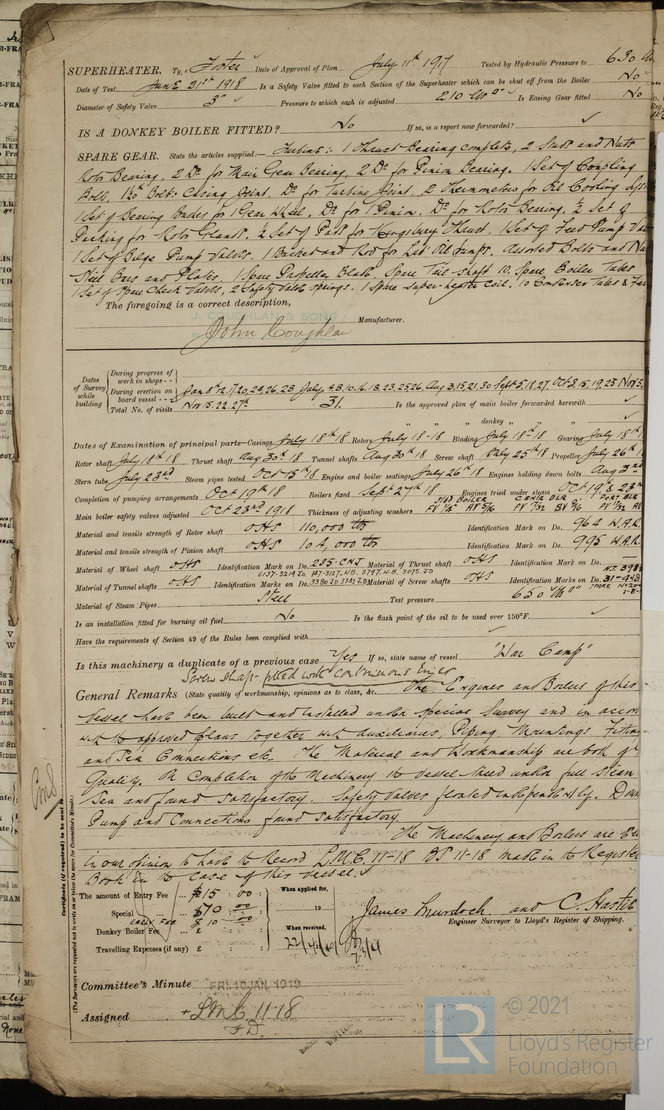 SUPERHEATER. Type, Foster Date of Approval of Plan July 11th 1917 Tested by Hydraulic Pressure to 630
Date of Test June 21st 1918 Is a Safety Valve fitted to each Section of the Superheater which can be shut off from the Boiler No
Diameter of Safety Valve 3" Pressure to which each is adjusted 210 lbs □" Is Easing Gear fitted No
IS A DONKEY BOILER FITTED? No If so, is a report now forwarded?
SPARE GEAR. State the articles supplied:— Turbine: 1 Thrust Bearing complete, 2 Studs and Nuts
Rotor Bearing, 2 Do for Main Gear Bearing, 2 Do for Pinion Bearing. 1 Set of Coupling
Bolts, Bolts Casing Joint, Do for Turbine Joint, 2 Thermometers for Oil Cooling
1 Set of Bearing Bushes for 1 Gear Wheel, Do for 1 Pinion, Do for Rotor Bearing, ½ Set of
Packing for Rotor Glands. ½ Set of Pads for Kingsbury Thrust. 1 Set of Feed Pump
1 Set of Bilge Pump Valves. 1 Bucket and Rod for Lub: Oil Pumps. Assorted Bolts and
Steel Bars and Plates. 1 Spare Propeller Blade Spare Tail-shaft 10 Spare Boiler Tubes
1 Set of Spare Check Valves, 2 Safety Valve springs. 1 Spare Super-heater Coil. 10 Condenser Tubes &
The foregoing is a correct description,
J. COUGHLAN & SONS
John Coughlan Manufacturer.
Dates of Survey while building
During progress of work in shops - -
During erection on board vessel - - -
Jan. 8th 12, 17, 20, 24, 26, 28 July 4, 8, 10, 16, 18, 23, 25, 26, Aug 3, 15, 21, 30 Sept 5, 18, 27. Oct 3, 15, 19, 23 Nov 5,
Nov 15, 22, 27th
Total No. of visits 31. Is the approved plan of main boiler forwarded herewith
" " " donkey "
Dates of Examination of principal parts—Casings July 18th 18 Rotors July 18-18 Blading July 18th 18 Gearing July 18th 1
Rotor shaft July 18th 18 Thrust shaft Aug 30th 18 Tunnel shafts Aug 30th 18 Screw shaft July 25th 18 Propeller July 26th 1
Stern tube July 23rd Steam pipes tested Oct 15th 18 Engine and boiler seatings July 26th 18 Engines holding down bolts Aug 3rd
Completion of pumping arrangements Oct 19th 18 Boilers fixed Sept 27th 18 Engines tried under steam Oct 19th & 23rd
STBD BOILER CENTR BLR PORT BLR
Main boiler safety valves adjusted Oct 23rd 1918 Thickness of adjusting washers
Material and tensile strength of Rotor shaft OHS 110,000 lbs Identification Mark on Do. 964 W.A.R.
Material and tensile strength of Pinion shaft OHS 104,000 lbs Identification Mark on Do. 995 W.A.R.
Material of Wheel shaft OHS Identification Mark on Do. 225-CNJ Material of Thrust shaft OHS Identification Mark on Do.
Material of Tunnel shafts OHS Identification Marks on Do. Material of Screw shafts OHS Identification Marks on Do.
Material of Steam Pipes Steel Test pressure 630 lbs □"
Is an installation fitted for burning oil fuel No Is the flash point of the oil to be used over 150°F.
Have the requirements of Section 49 of the Rules been complied with
Is this machinery a duplicate of a previous case Yes If so, state name of vessel "War Camp"
Screw shaft fitted with continuous liner
General Remarks (State quality of workmanship, opinions as to class, &c. The Engines and Boilers of this
Vessel have been built and installed under Special Survey and in
with the approved plans together with auxiliaries, Piping Mountings Fittings
and Connections etc. The Material and Workmanship are both of
Quality. On Completion of the Machinery the Vessel tried under full Steam
Sea and found Satisfactory. Safety Valves floated independently.
Pump and Connections found Satisfactory.
The Machinery and Boilers are
in our opinion to have the Record L.M.C. 11-18 BS 11-18 made in the Register
Book in the case of this Vessel.
The amount of Entry Fee ... $15 : 00 : When applied for,
Special ... $70 : 00 : 19
Donkey Boiler Fee ... £ 10 00 When received,
Travelling Expenses (if any) £ : :
James Murdoch and C.
Engineer Surveyor to Lloyd's Register of Shipping.
Committee's Minute FRI. 10 JAN. 1919
Assigned + LMC 11·18
F.D.
Certificate (if required) to be sent to
(The Surveyors are requested not to write on or below the space for Committee's Minute.)
© 2021
LR
Lloyd's Register
Foundation